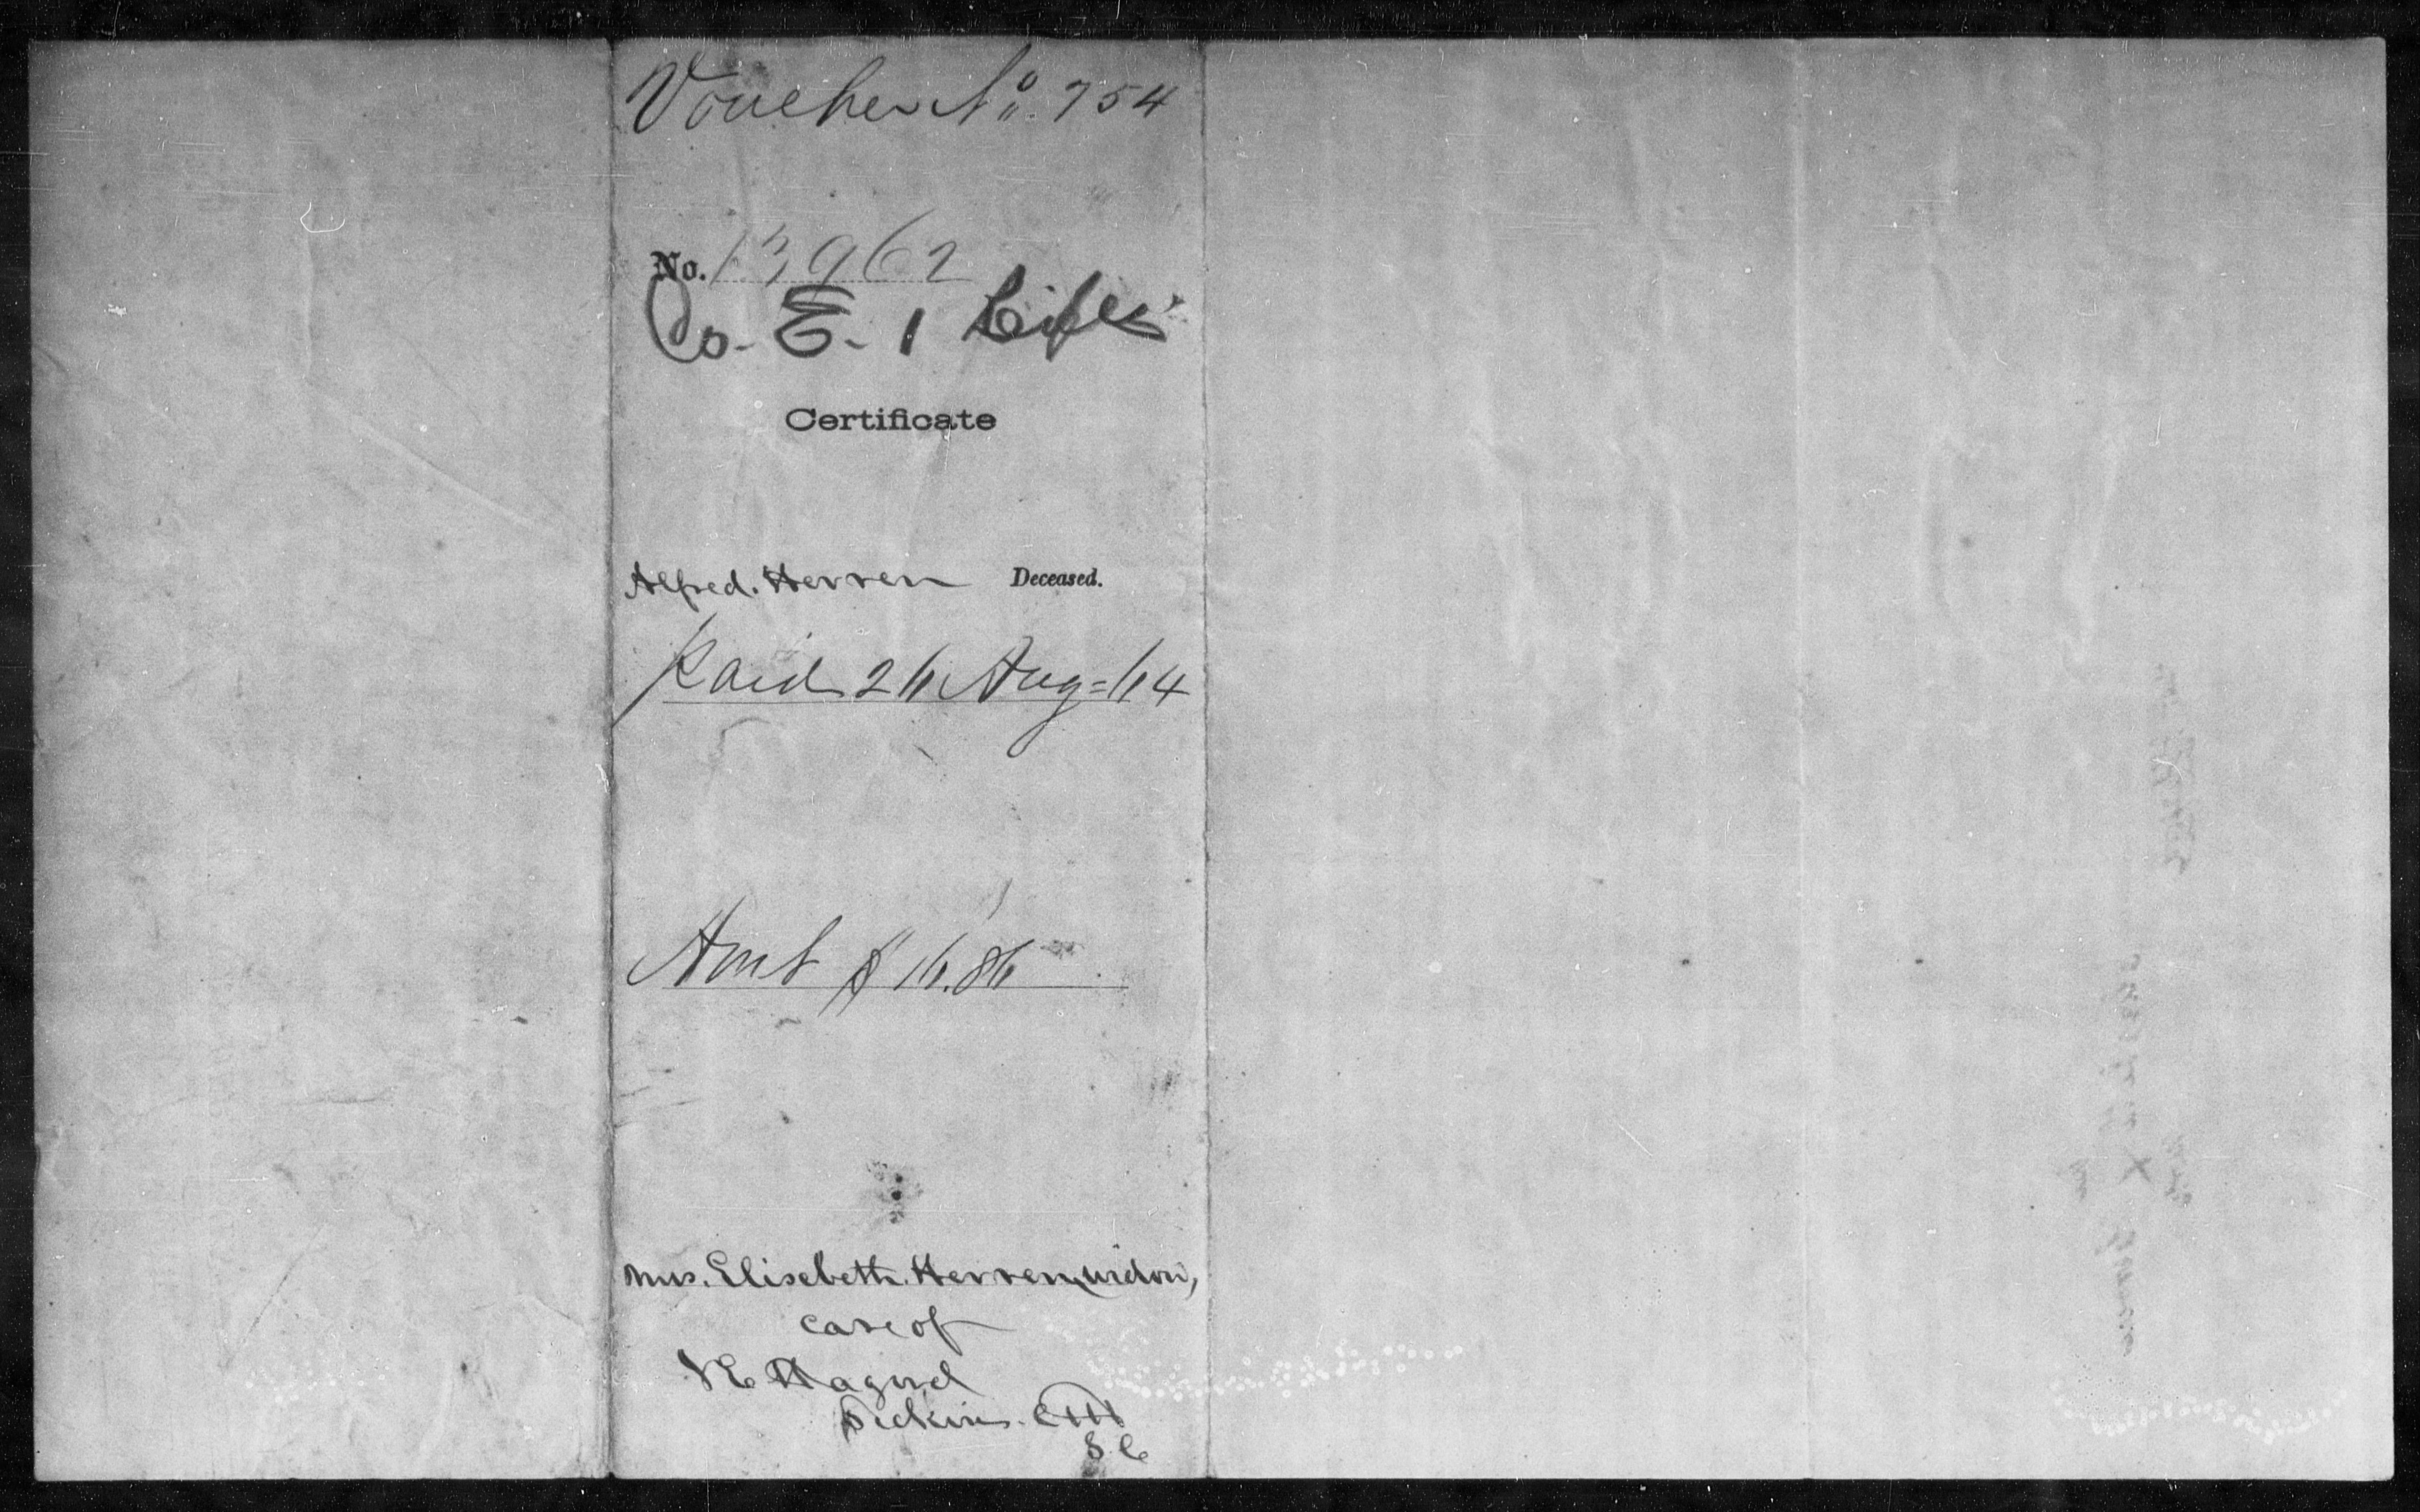 Voucher No. 754
No. 13962
Co. E. 1 Rifles
Certificate
Alfred. Herren Deceased.
Paid 26 Aug=64
Amt $16.86
Mrs. Elisebeth. Herren, widow,
care of
Hagood
Pickins. CH
S C